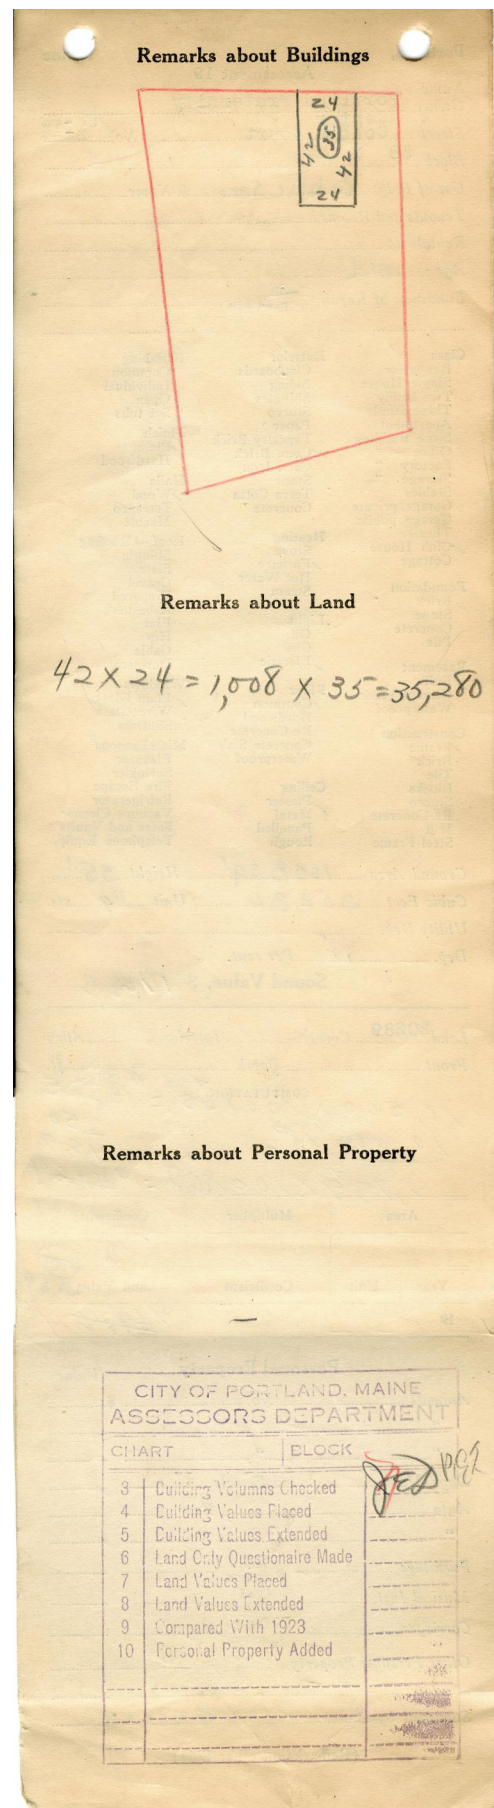 Remarks about Buildings
24
42 35 42
24
Remarks about Land
42 X 24 = 1,008 X 35 = 35,280
Remarks about Personal Property
CITY OF PORTLAND, MAINE
ASSESSORS DEPARTMENT
CHART BLOCK
3 Building Volumns Checked
4 Building Values Placed
5 Building Values Extended
6 Land Only Questionaire Made
7 Land Values Placed
8 Land Values Extended
9 Compared With 1923
10 Personal Property Added